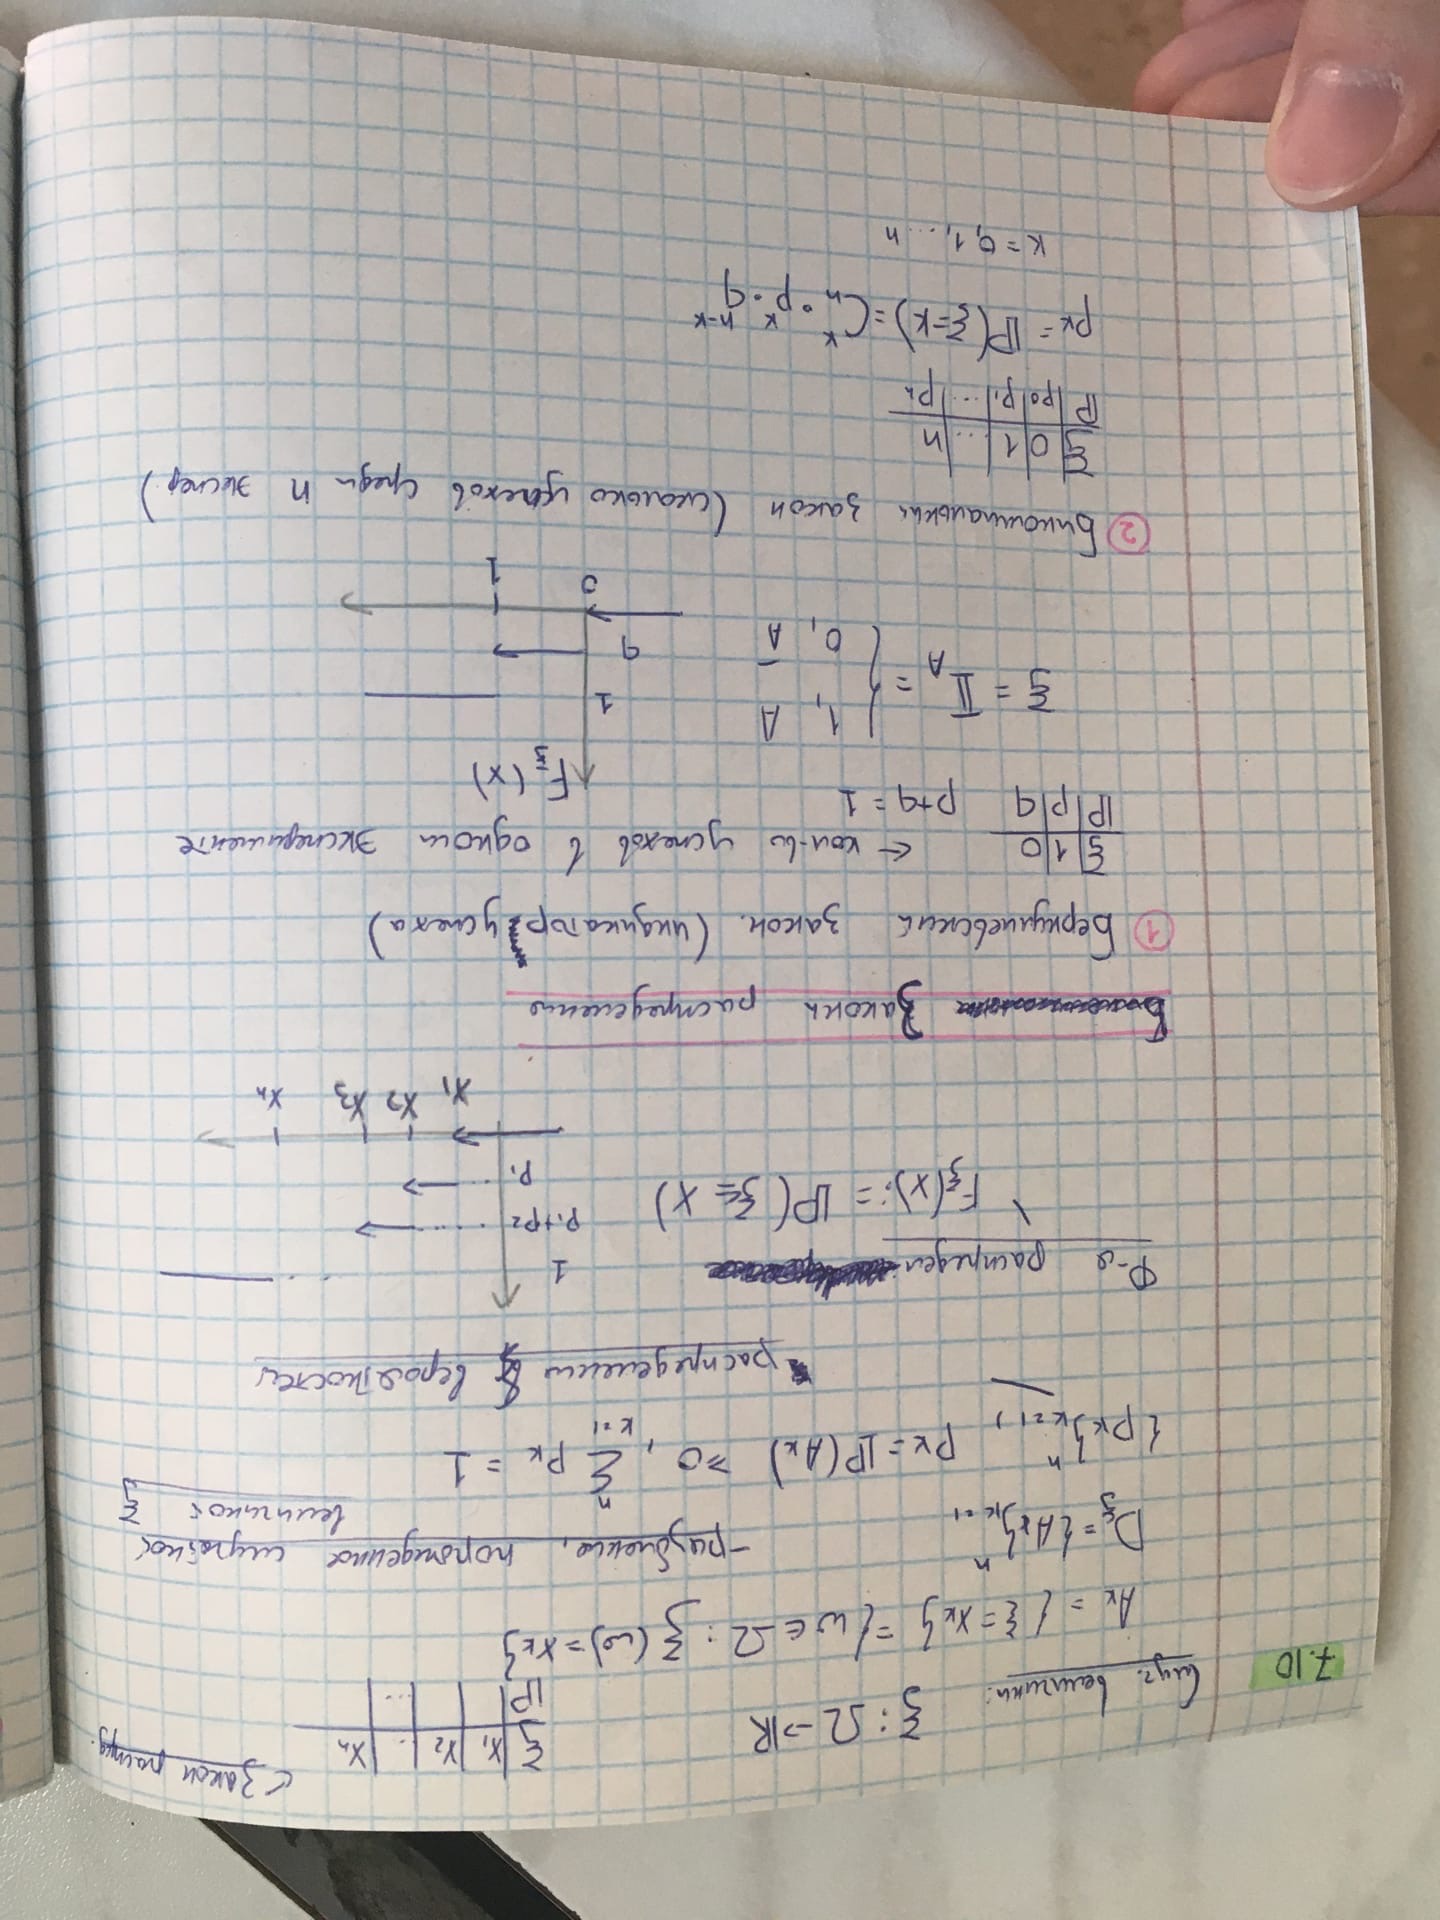 ← Закон распред.
7.10 Случ. величины: ξ : Ω → ℝ
ξ | x₁ | x₂ | .. | xₙ
ℙ | | | ... |
Aₖ = {ξ = xₖ} = {ω ∈ Ω : ξ(ω) = xₖ}
D_ξ = {Aₖ}ⁿₖ₌₁ – разбиение, порожденное случайной
величиной ξ
{pₖ}ⁿₖ₌₁, pₖ = ℙ(Aₖ) ≥ 0, ∑ⁿₖ₌₁ pₖ = 1
распределение вероятностей
Ф-я распредел
F_ξ(x) := ℙ(ξ ≤ x)
1
p₁+p₂
p₁
x₁ x₂ x₃ xₙ
Законы распределения
① Бернулиевский закон. (индикатор успеха)
ξ | 1 | 0 ← кол-во успехов в одном эксперименте
ℙ | p | q p+q = 1
F_ξ(x)
ξ = 𝕀_A = { 1, A
0, A̅
1
q
0 1
② Биномиальный закон (сколько успехов среди n экспер.)
ξ | 0 | 1 | ... | n
ℙ | p₀ | p₁ | ... | pₙ
pₖ = ℙ(ξ=k) = Cₙᵏ · pᵏ · qⁿ⁻ᵏ
k = 0, 1, ... n